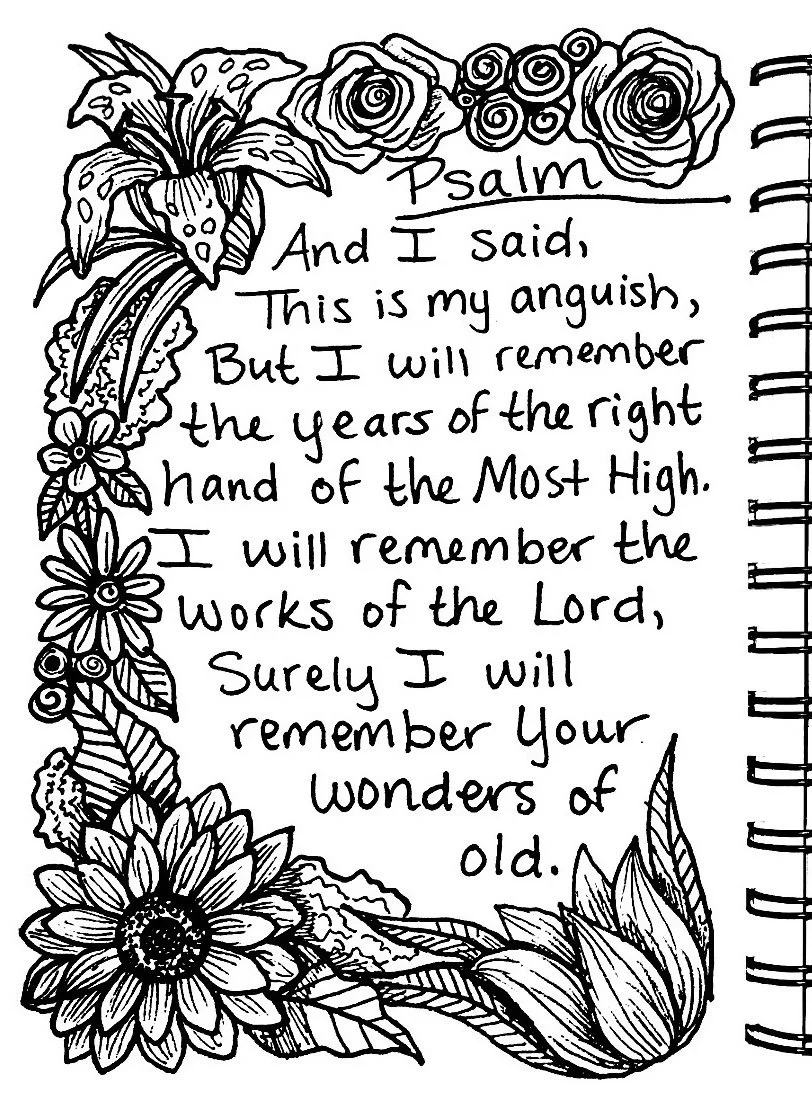 Psalm
And I said,
This is my anguish,
But I will remember
the years of the right
hand of the Most High.
I will remember the
works of the Lord,
Surely I will
remember Your
wonders of
old.